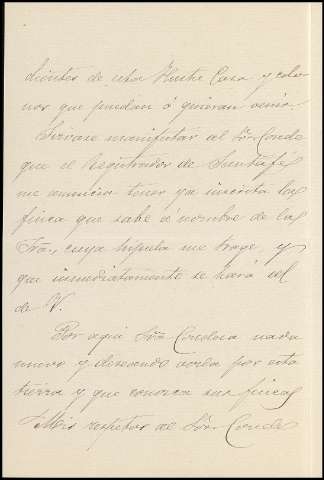 dientes de esta Ilustre Casa y colo
nos que puedan ó quieran venir.
Sirvase manifestar al Sõr Conde
que el Registrador de Santafé
me anuncia tener ya inscrita la
finca que sabe a nombre de la
Sra., cuya hijuela me traje, y
que inmediatamente se hará al
de V.
Por aqui Sra Condesa nada
nuevo y deseando verla por esta
tierra y que conozca sus fincas
Mis respetos al Sõr Conde